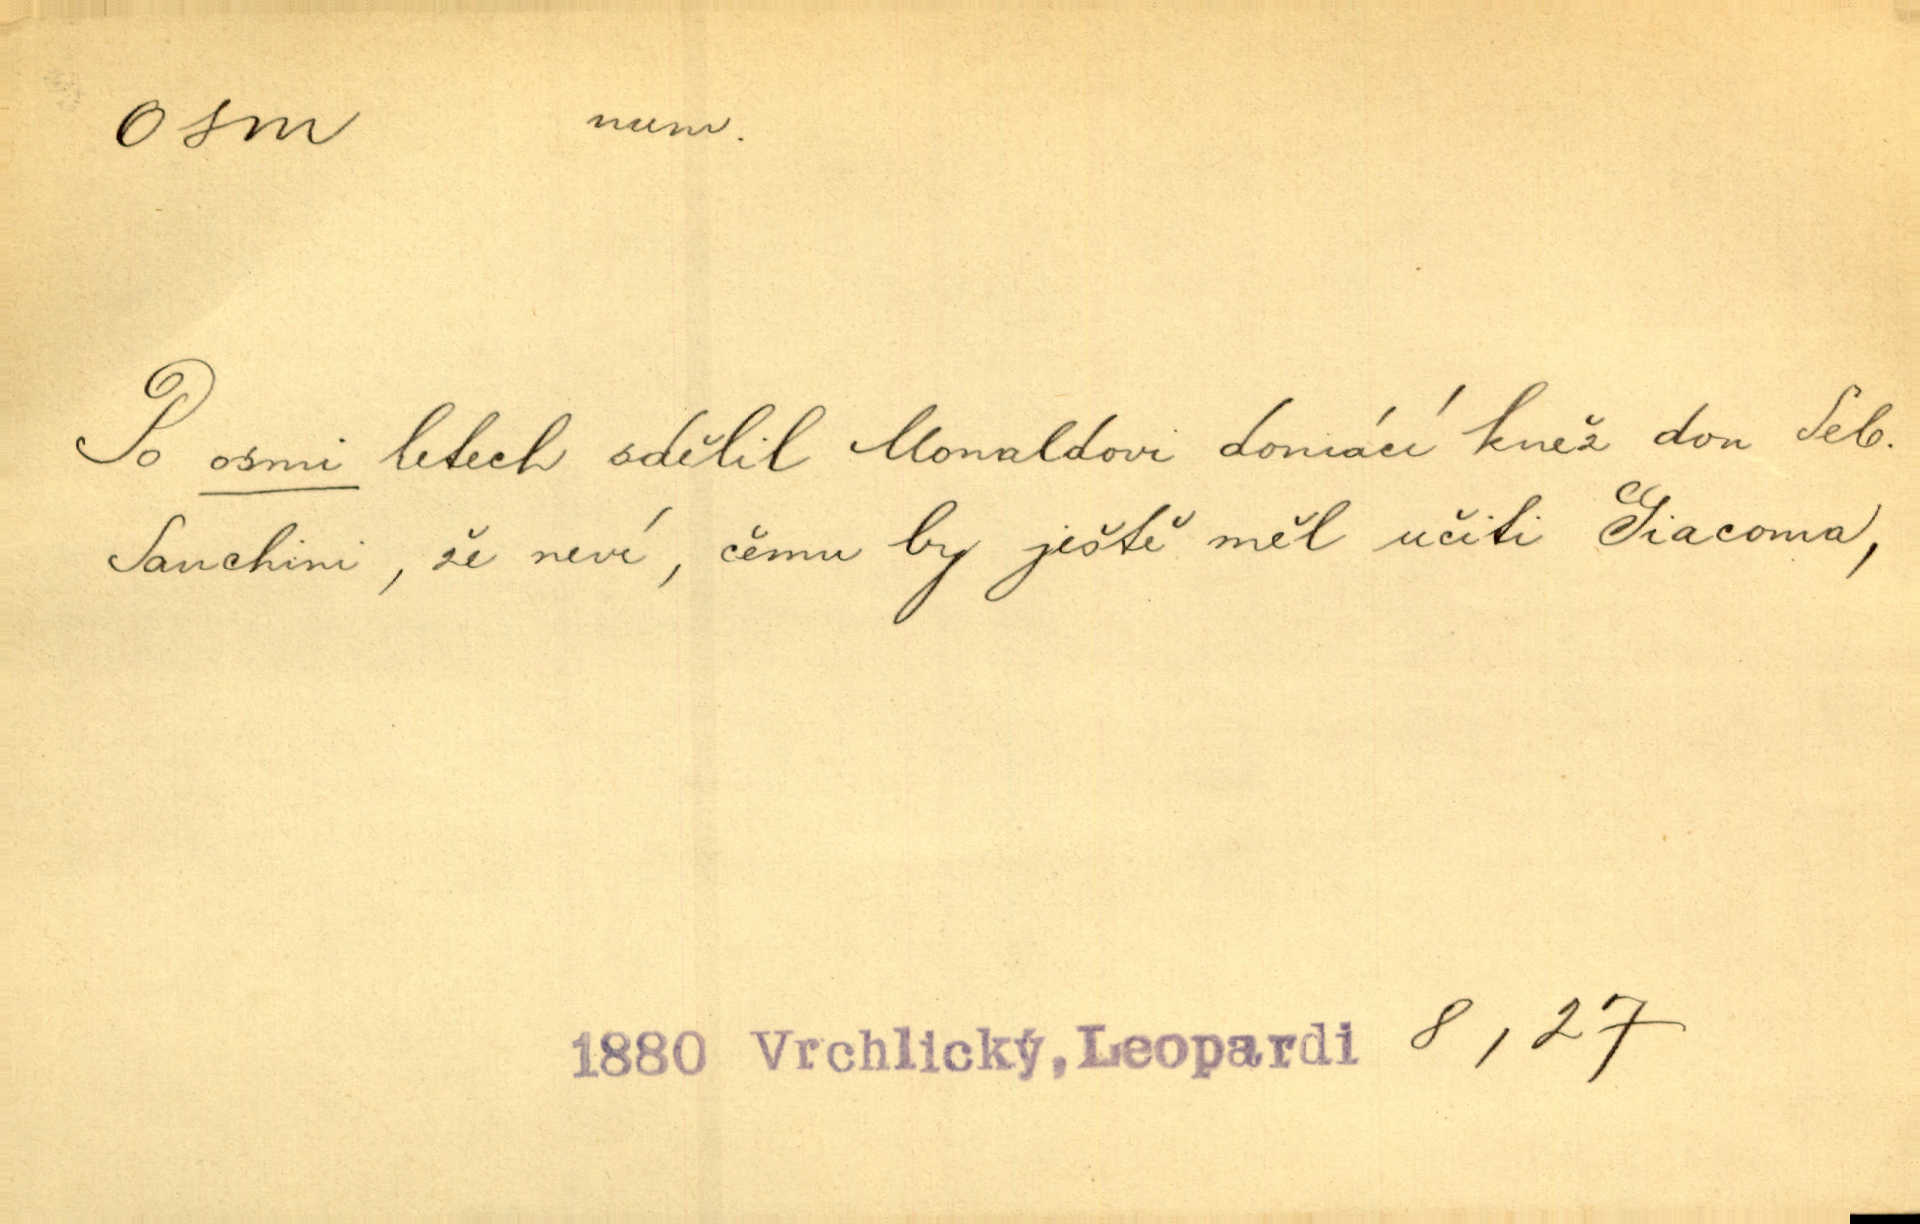 osm num.
Po osmi letech sdělil Monaldovi domácí kněz don Seb.
Sanchini, že neví, čemu by ještě měl učiti Giacoma,
1880 Vrchlický, Leopardi 8, 27